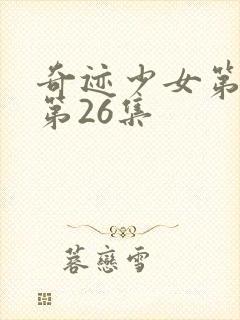 奇迹少女第
第26集
蕶戀雪